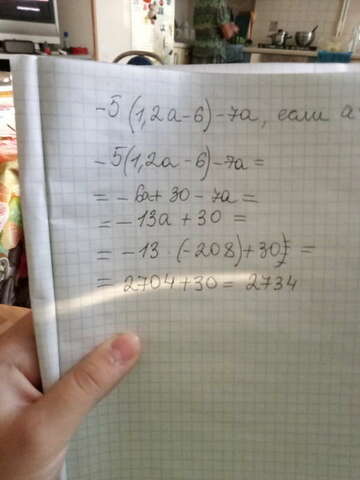 -5(1,2a-6)-7a, если a
-5(1,2a-6)-7a=
=-6a+30-7a=
=-13a+30=
=-13·(-208)+30)=
=2704+30=2734